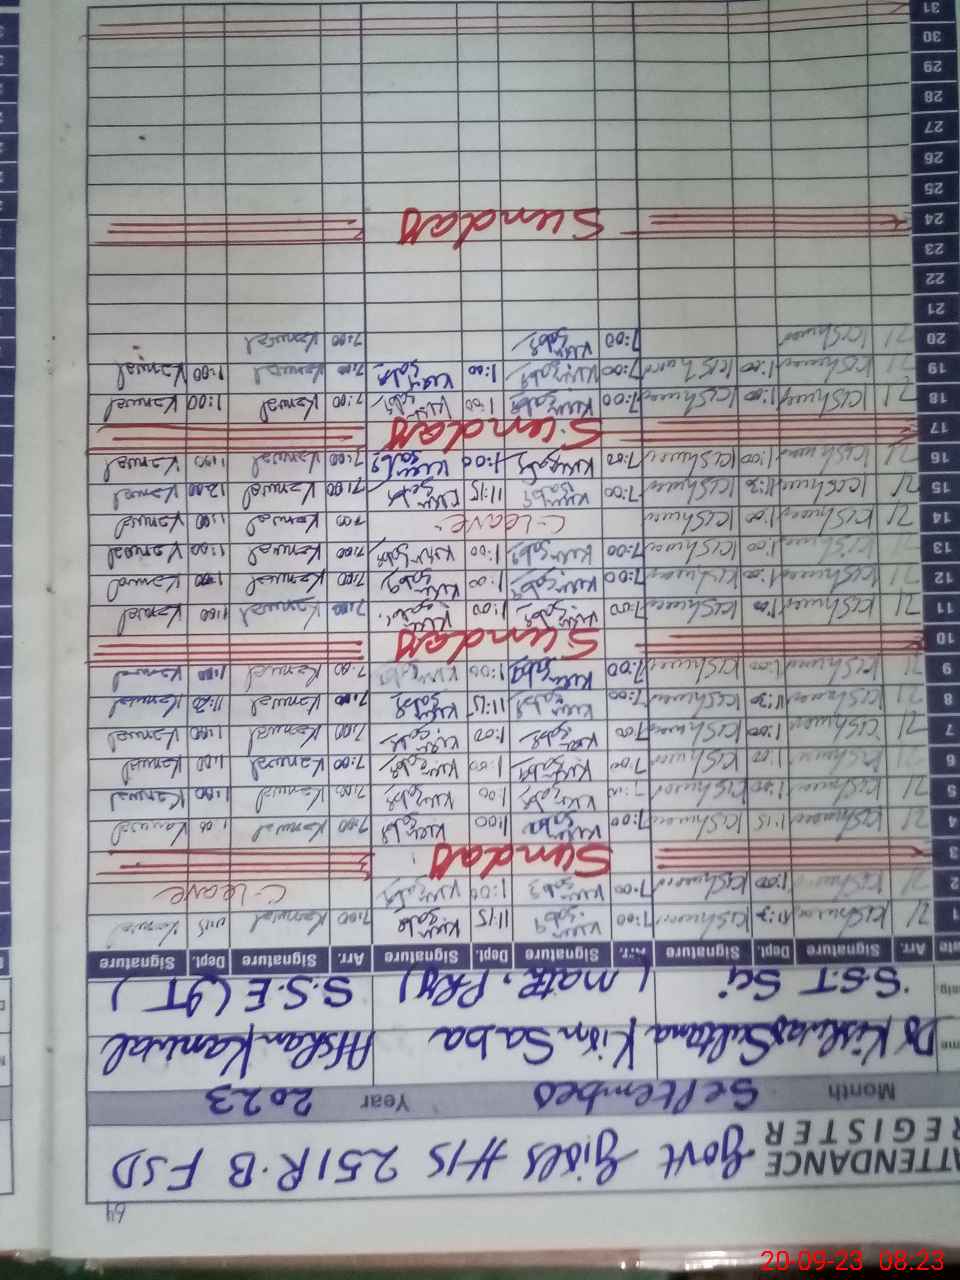 64
ATTENDANCE REGISTER Govt Girls H/S 251 R.B FSD
Month September Year 2023
Dr Kishwar Sultana Kirn Saba Afshan Kanwal
S.S.T Sci (Matr. PRY) S.S.E (IT)
Arr. Signature Dept. Signature Arr. Signature Dept. Signature Arr. Signature Dept. Signature
1 71 Kishwar 11:30 Kishwar 7:00 Kirn Saba 11:15 Kirn Saba 7:00 Kanwal 11:15 Kanwal
2 71 Kishwar 1:00 Kishwar 7:00 Kirn Saba 1:00 Kirn Saba C-leave
3 Sunday
4 71 Kishwar 1:15 Kishwar 7:00 Kirn Saba 1:00 Kirn Saba 7:00 Kanwal 1:00 Kanwal
5 71 Kishwar 1:00 Kishwar 7:00 Kirn Saba 1:00 Kirn Saba 7:00 Kanwal 1:00 Kanwal
6 71 Kishwar 1:00 Kishwar 7:00 Kirn Saba 1:00 Kirn Saba 7:00 Kanwal 1:00 Kanwal
7 71 Kishwar 1:00 Kishwar 7:00 Kirn Saba 1:00 Kirn Saba 7:00 Kanwal 1:00 Kanwal
8 71 Kishwar 11:30 Kishwar 7:00 Kirn Saba 11:15 Kirn Saba 7:00 Kanwal 11:30 Kanwal
9 71 Kishwar 1:00 Kishwar 7:00 Kirn Saba 1:00 Kirn Saba 7:00 Kanwal 1:00 Kanwal
10 Sunday
11 71 Kishwar 1:00 Kishwar 7:00 Kirn Saba 1:00 Kirn Saba 7:00 Kanwal 1:00 Kanwal
12 71 Kishwar 1:00 Kishwar 7:00 Kirn Saba 1:00 Kirn Saba 7:00 Kanwal 1:00 Kanwal
13 71 Kishwar 1:00 Kishwar 7:00 Kirn Saba 1:00 Kirn Saba 7:00 Kanwal 1:00 Kanwal
14 71 Kishwar 1:00 Kishwar C-leave 7:00 Kanwal 1:00 Kanwal
15 71 Kishwar 11:30 Kishwar 7:00 Kirn Saba 11:15 Kirn Saba 7:00 Kanwal 12:00 Kanwal
16 71 Kishwar 1:00 Kishwar 7:00 Kirn Saba 1:00 Kirn Saba 7:00 Kanwal 1:00 Kanwal
17 Sunday
18 71 Kishwar 1:00 Kishwar 7:00 Kirn Saba 1:00 Kirn Saba 7:00 Kanwal 1:00 Kanwal
19 71 Kishwar 1:00 Kishwar 7:00 Kirn Saba 1:00 Kirn Saba 7:00 Kanwal 1:00 Kanwal
20 71 Kishwar 7:00 Kirn Saba 7:00 Kanwal
21
22
23
24 Sunday
25
26
27
28
29
30
31
20-09-23 08:23